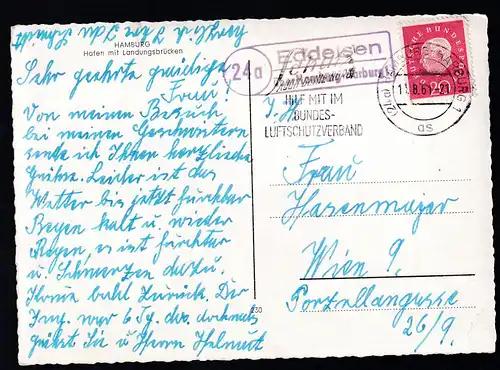 HAMBURG
Hafen mit Landungsbrücken
Sehr geehrte gnädige
Frau!
Von meinem Besuch
bei meinen Geschwistern
sende ich Ihnen herzliche
Grüße. Leider ist das
Wetter bis jetzt furchtbar
Regen kalt u. wieder
Regen, es ist furchtbar
u. Schmerzen dazu.
Komme bald zurück. Der
war 6 Tg. da.
grüßt Sie u. Herrn Helmut
230
24a
Eddelsen
Hamburg-Harburg
HILF MIT IM
BUNDES-
LUFTSCHUTZVERBAND
11.8.61-21
as
DEUTSCHE BUNDESPOST
20
Frau
Hasenmayer
Wien 9.
Porzellangasse
26/9.